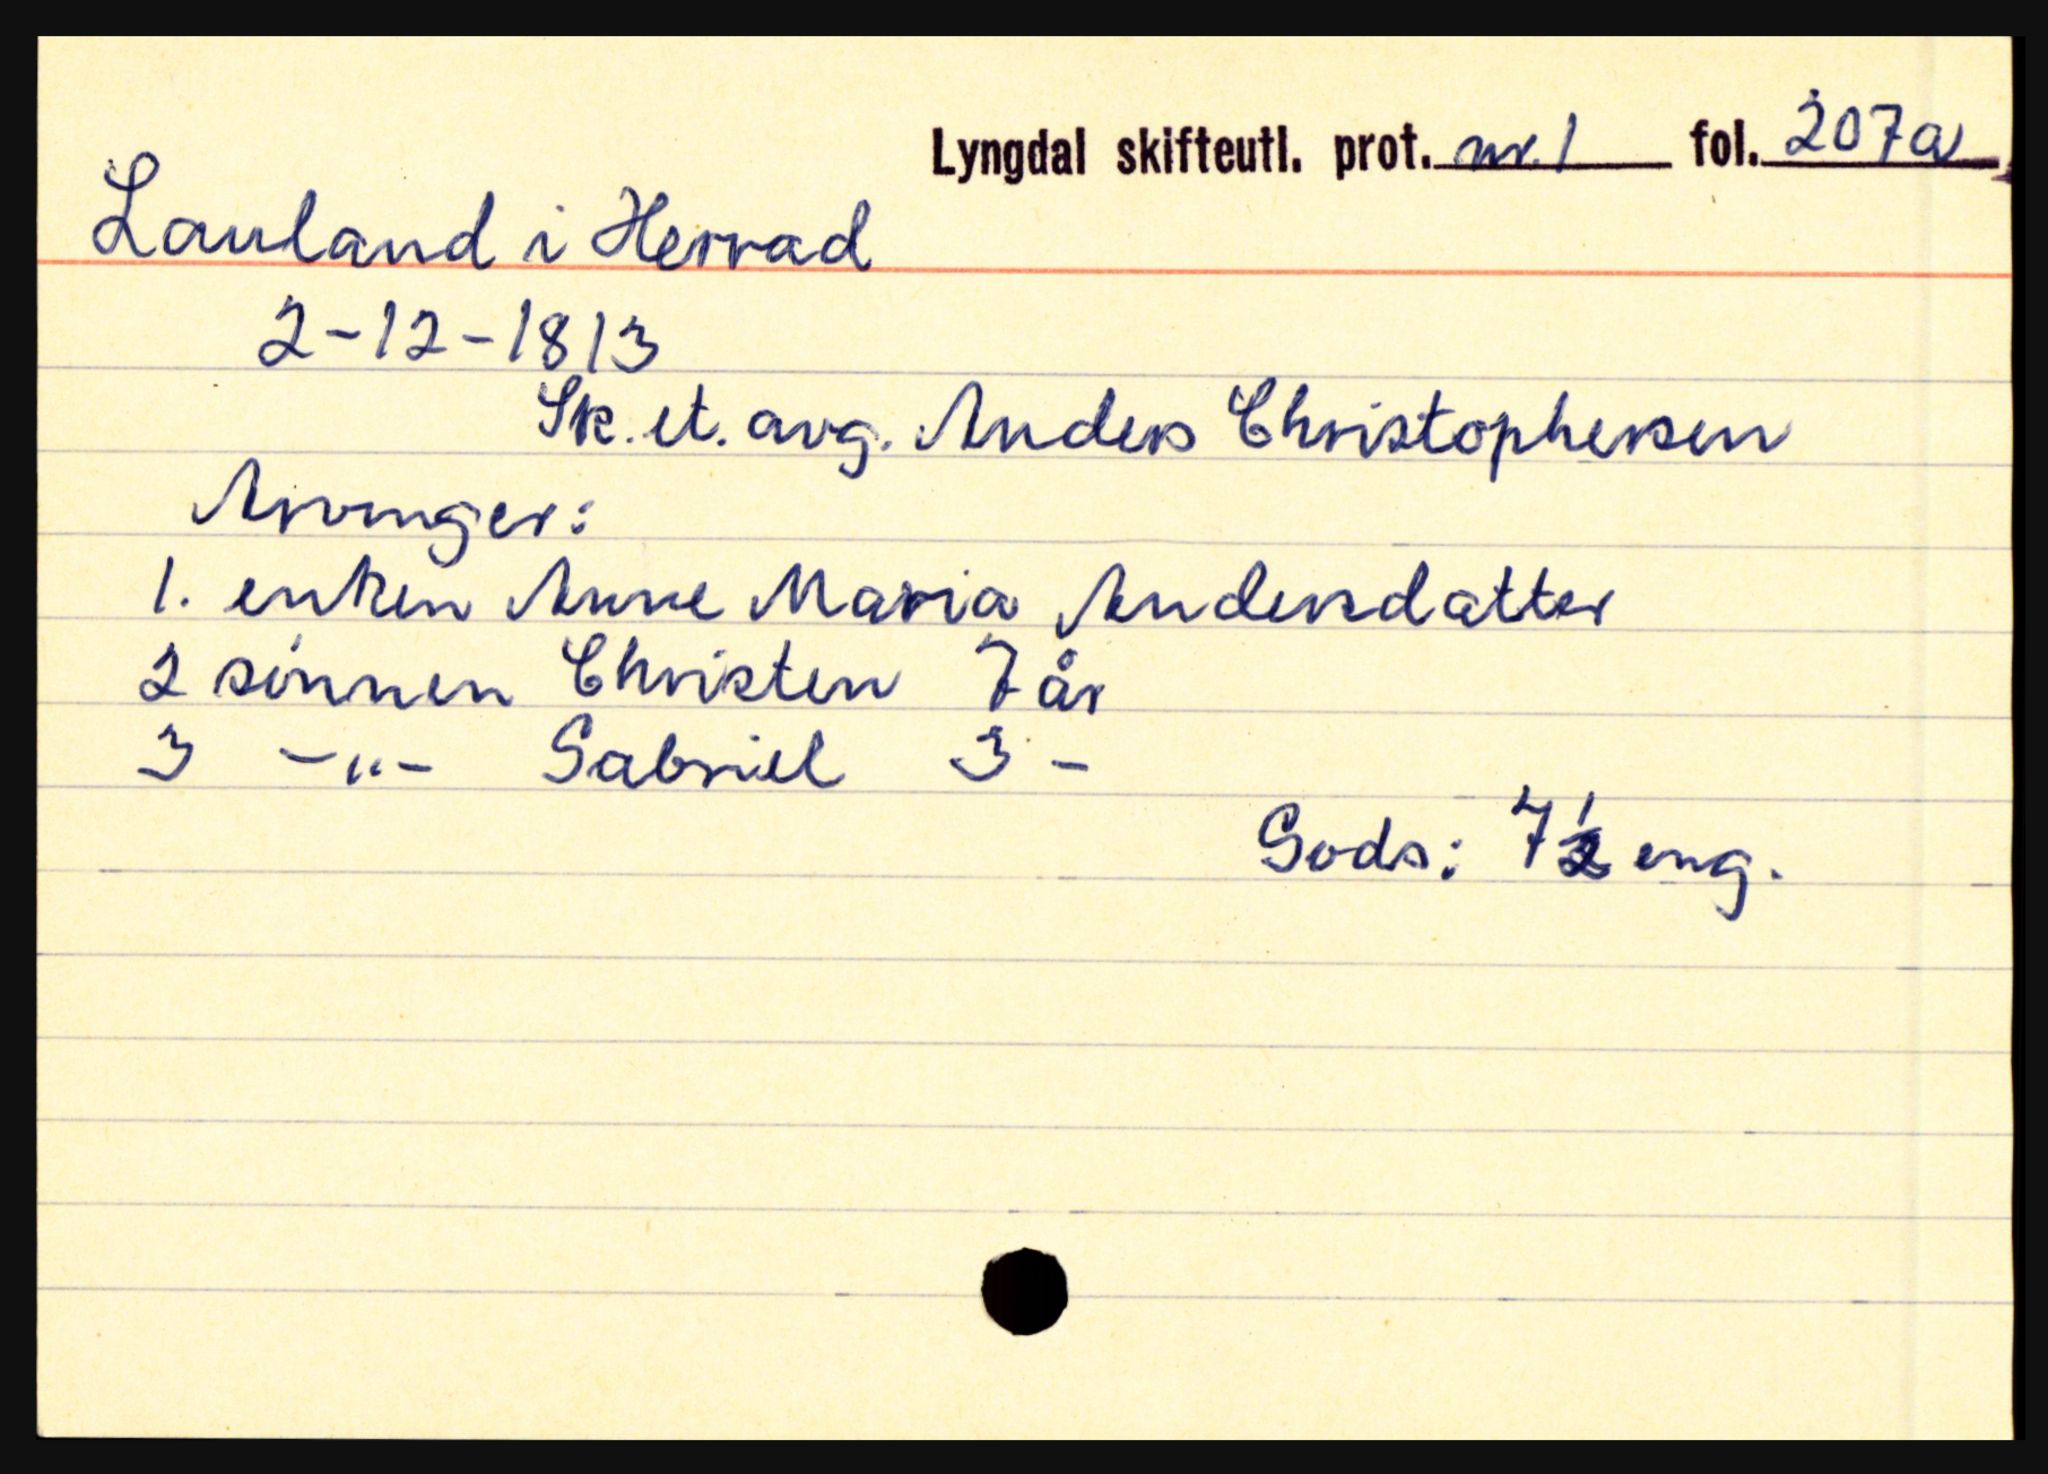 Lyngdal skifteutl. prot. nr. 1 fol. 207a
Lauland i Herrad
2-12-1813
Sk. et. avg. Anders Christophersen
Arvinger:
1. enken Anne Maria Andersdatter
2 sønnen Christen 7 år
3 -"- Gabriel 3 -
Gods: 7 1/2 eng.